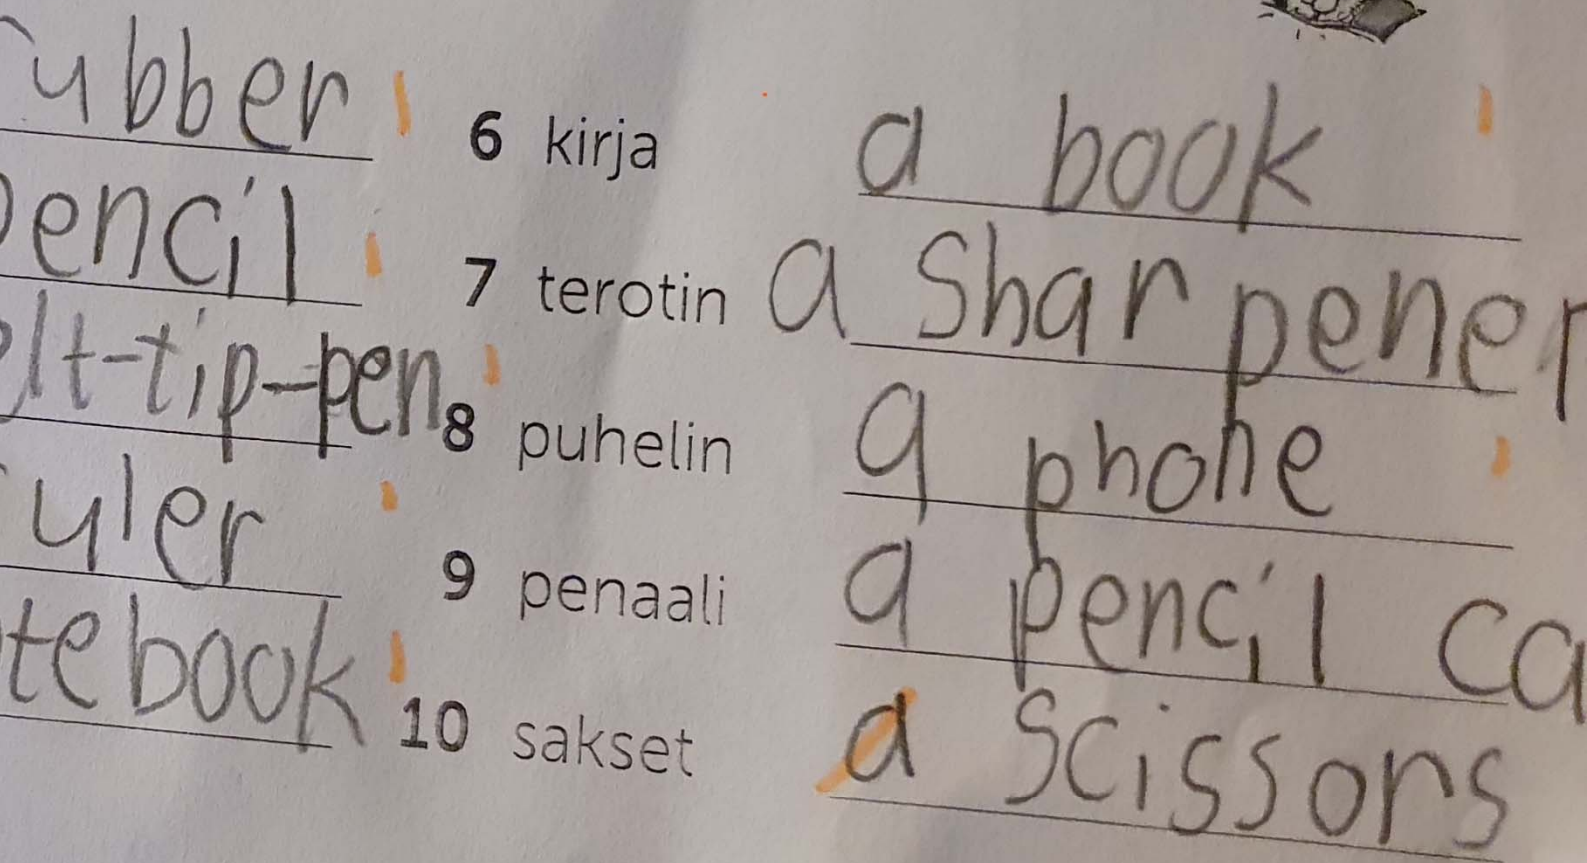 rubber
pencil
felt-tip-pen
ruler
notebook
6 kirja a book
7 terotin a sharpener
8 puhelin a phone
9 penaali a pencil ca
10 sakset a scissors